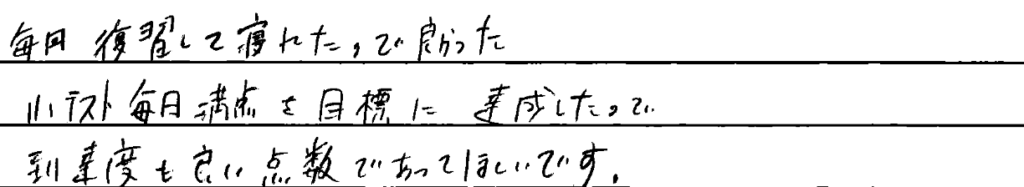 毎日 復習して寝れたので良かった
小テスト毎日満点を目標に 達成したので
到達度も良い点数であってほしいです。